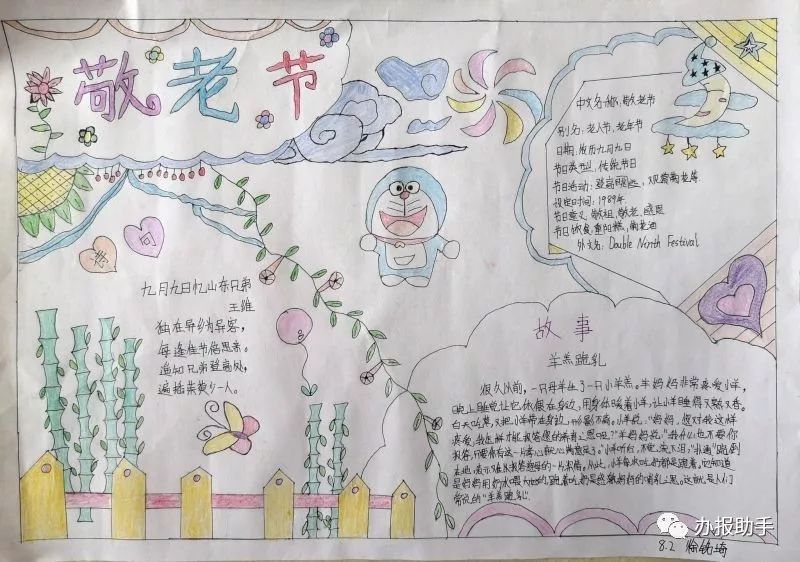 敬老节
诗
词
九月九日忆山东兄弟
王维
独在异乡为异客,
每逢佳节倍思亲。
遥知兄弟登高处,
遍插茱萸少一人。
中文名称:敬老节
别名:老人节、老年节
日期:农历九月九日
节日类型:传统节日
节日活动:登高,观赏菊花等
设定时间:1989年
节日意义:敬祖、敬老、感恩
节日饮食:重阳糕,菊花酒
外文名:Double Ninth Festival
故事
羊羔跪乳
很久以前,一只母羊生了一只小羊羔。羊妈妈非常疼爱小羊,
晚上睡觉让它依偎在身边,用身体暖着小羊,让小羊睡得又熟又香。
白天吃草,又把小羊带在身边,形影不离。
小羊说:"妈妈,您对我这样
疼爱,我怎样才能报答您的养育之恩呢?"羊妈妈说:"我什么也不要你
报答,只要你有这一片孝心就心满意足了。"小羊听后,不觉流下泪,"扑通"跪倒
在地,表示难以报答慈母的一片深情。从此,小羊每次吃奶都是跪着。它知道
是妈妈用奶水喂大她的,跪着吃奶是感激妈妈的哺乳之恩。这就是人们
常说的"羊羔跪乳"。
办报助手
8.2